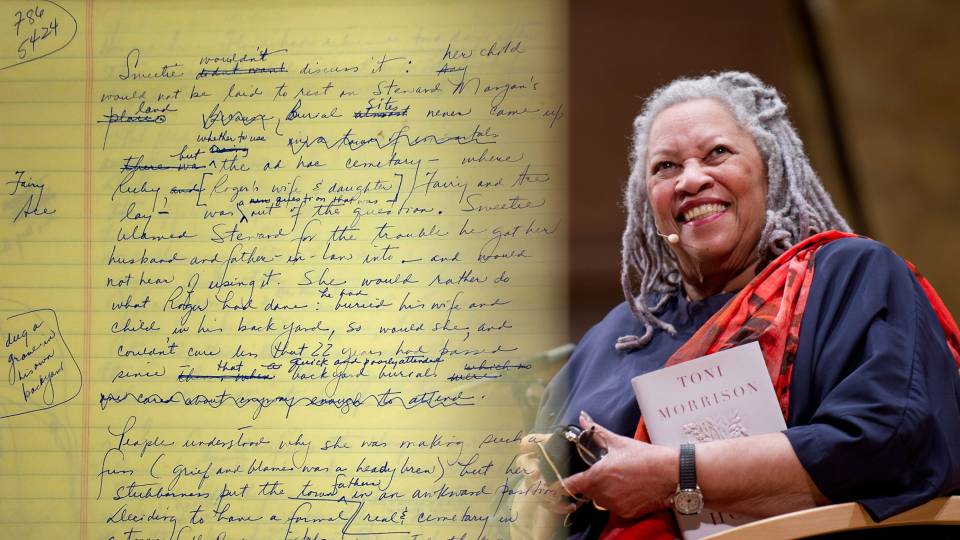 786
5424
Sweetie wouldn't discuss it: her child
did not want
would not be laid to rest on Steward Morgan's
land
place. Because, Burial sites almost never came up
whether to use
but
there was the ad hoc cemetary - where
Ruby and [Roger's wife & daughter] Fairy and Ace
Fairy
Ace
lay - was out of the question. Sweetie
a new question that was
blamed Steward for the trouble he got her
husband and father-in-law into - and would
not hear of using it. She would rather do
what Roger had done: he had buried his wife and
child in his back yard, so would she, and
couldn't care less that 22 years had passed
since that quick and poorly attended backyard burial
dug a
grave in
his own
backyard
you cared about anyway enough to attend.
People understood why she was making such a
fuss (grief and blame was a heady brew) but her
stubborness put the town fathers in an awkward position
Deciding to have a formal / real & cemetary in
TONI
MORRISON